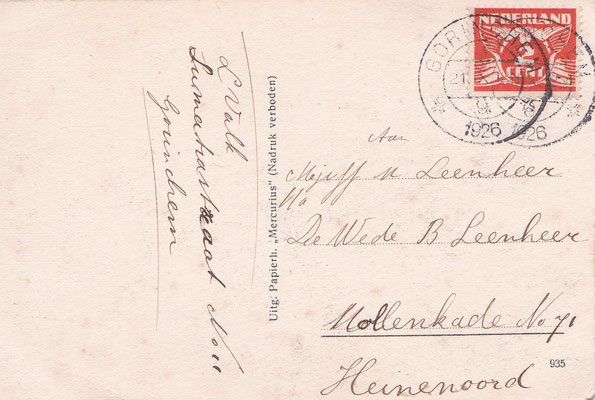 L Valk
Sumatrastraat No 11
Gorinchem
Uitg. Papierh. „Mercurius" (Nadruk verboden)
NEDERLAND
2
CENT
GORINCHEM
1926
1926
Aan
Mejuff M Leenheer
p/a
De Wede B Leenheer
Mollenkade No 71
Heinenoord
935